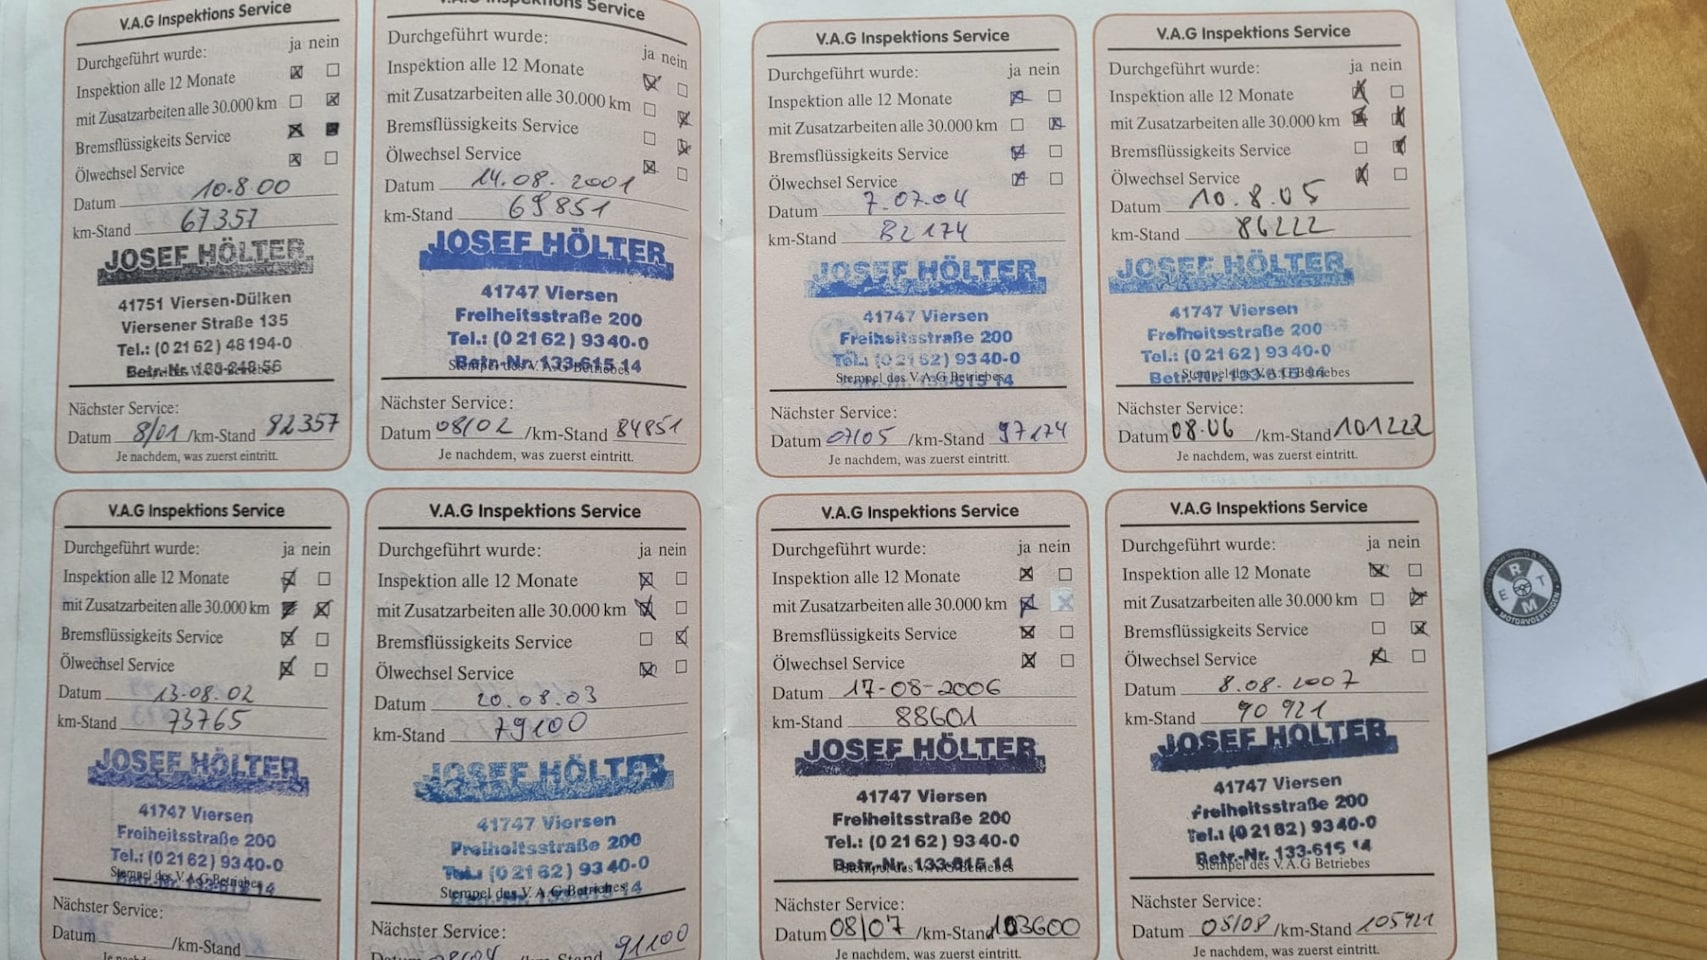 V.A.G Inspektions Service
Durchgeführt wurde:
ja nein
Inspektion alle 12 Monate
mit Zusatzarbeiten alle 30.000 km
Bremsflüssigkeits Service
Ölwechsel Service
Datum 10.8.00
km-Stand 67357
JOSEF HÖLTER
41751 Viersen-Dülken
Viersener Straße 135
Tel.: (0 21 62) 48194-0
Nächster Service:
Datum 8/01 /km-Stand 82357
Je nachdem, was zuerst eintritt.
V.A.G Inspektions Service
Durchgeführt wurde:
ja nein
Inspektion alle 12 Monate
mit Zusatzarbeiten alle 30.000 km
Bremsflüssigkeits Service
Ölwechsel Service
Datum 14.08.2001
km-Stand 69851
JOSEF HÖLTER
41747 Viersen
Freiheitsstraße 200
Tel.: (0 21 62) 93 40-0
Betr.-Nr. 133-615 14
Stempel des V.A.G Betriebes
Nächster Service:
Datum 08/02 /km-Stand 84851
Je nachdem, was zuerst eintritt.
V.A.G Inspektions Service
Durchgeführt wurde:
ja nein
Inspektion alle 12 Monate
mit Zusatzarbeiten alle 30.000 km
Bremsflüssigkeits Service
Ölwechsel Service
Datum 7.07.04
km-Stand 82174
JOSEF HÖLTER
41747 Viersen
Freiheitsstraße 200
Tel.: (0 21 62) 93 40-0
Stempel des V.A.G Betriebes
Nächster Service:
Datum 07/05 /km-Stand 97174
Je nachdem, was zuerst eintritt.
V.A.G Inspektions Service
Durchgeführt wurde:
ja nein
Inspektion alle 12 Monate
mit Zusatzarbeiten alle 30.000 km
Bremsflüssigkeits Service
Ölwechsel Service
Datum 10.8.05
km-Stand 86222
JOSEF HÖLTER
41747 Viersen
Freiheitsstraße 200
Tel.: (0 21 62) 93 40-0
Stempel des V.A.G Betriebes
Nächster Service:
Datum 08.06 /km-Stand 101222
Je nachdem, was zuerst eintritt.
V.A.G Inspektions Service
Durchgeführt wurde:
ja nein
Inspektion alle 12 Monate
mit Zusatzarbeiten alle 30.000 km
Bremsflüssigkeits Service
Ölwechsel Service
Datum 13.08.02
km-Stand 73765
JOSEF HÖLTER
41747 Viersen
Freiheitsstraße 200
Tel.: (0 21 62) 93 40-0
Stempel des V.A.G Betriebes
Nächster Service:
Datum /km-Stand
V.A.G Inspektions Service
Durchgeführt wurde:
ja nein
Inspektion alle 12 Monate
mit Zusatzarbeiten alle 30.000 km
Bremsflüssigkeits Service
Ölwechsel Service
Datum 20.08.03
km-Stand 79100
JOSEF HÖLTER
41747 Viersen
Freiheitsstraße 200
Tel.: (0 21 62) 93 40-0
Stempel des V.A.G Betriebes
Nächster Service:
91100
V.A.G Inspektions Service
Durchgeführt wurde:
ja nein
Inspektion alle 12 Monate
mit Zusatzarbeiten alle 30.000 km
Bremsflüssigkeits Service
Ölwechsel Service
Datum 17-08-2006
km-Stand 88601
JOSEF HÖLTER
41747 Viersen
Freiheitsstraße 200
Tel.: (0 21 62) 93 40-0
Betr.-Nr. 133-615 14
Nächster Service:
Datum 08/07 /km-Stand 103600
Je nachdem, was zuerst eintritt.
V.A.G Inspektions Service
Durchgeführt wurde:
ja nein
Inspektion alle 12 Monate
mit Zusatzarbeiten alle 30.000 km
Bremsflüssigkeits Service
Ölwechsel Service
Datum 8.08.2007
km-Stand 90921
JOSEF HÖLTER
41747 Viersen
Freiheitsstraße 200
Tel.: (0 21 62) 93 40-0
Betr.-Nr. 133-615 14
Stempel des V.A.G Betriebes
Nächster Service:
Datum 05/08 /km-Stand 105921
Je nachdem, was zuerst eintritt.
R
E T
M